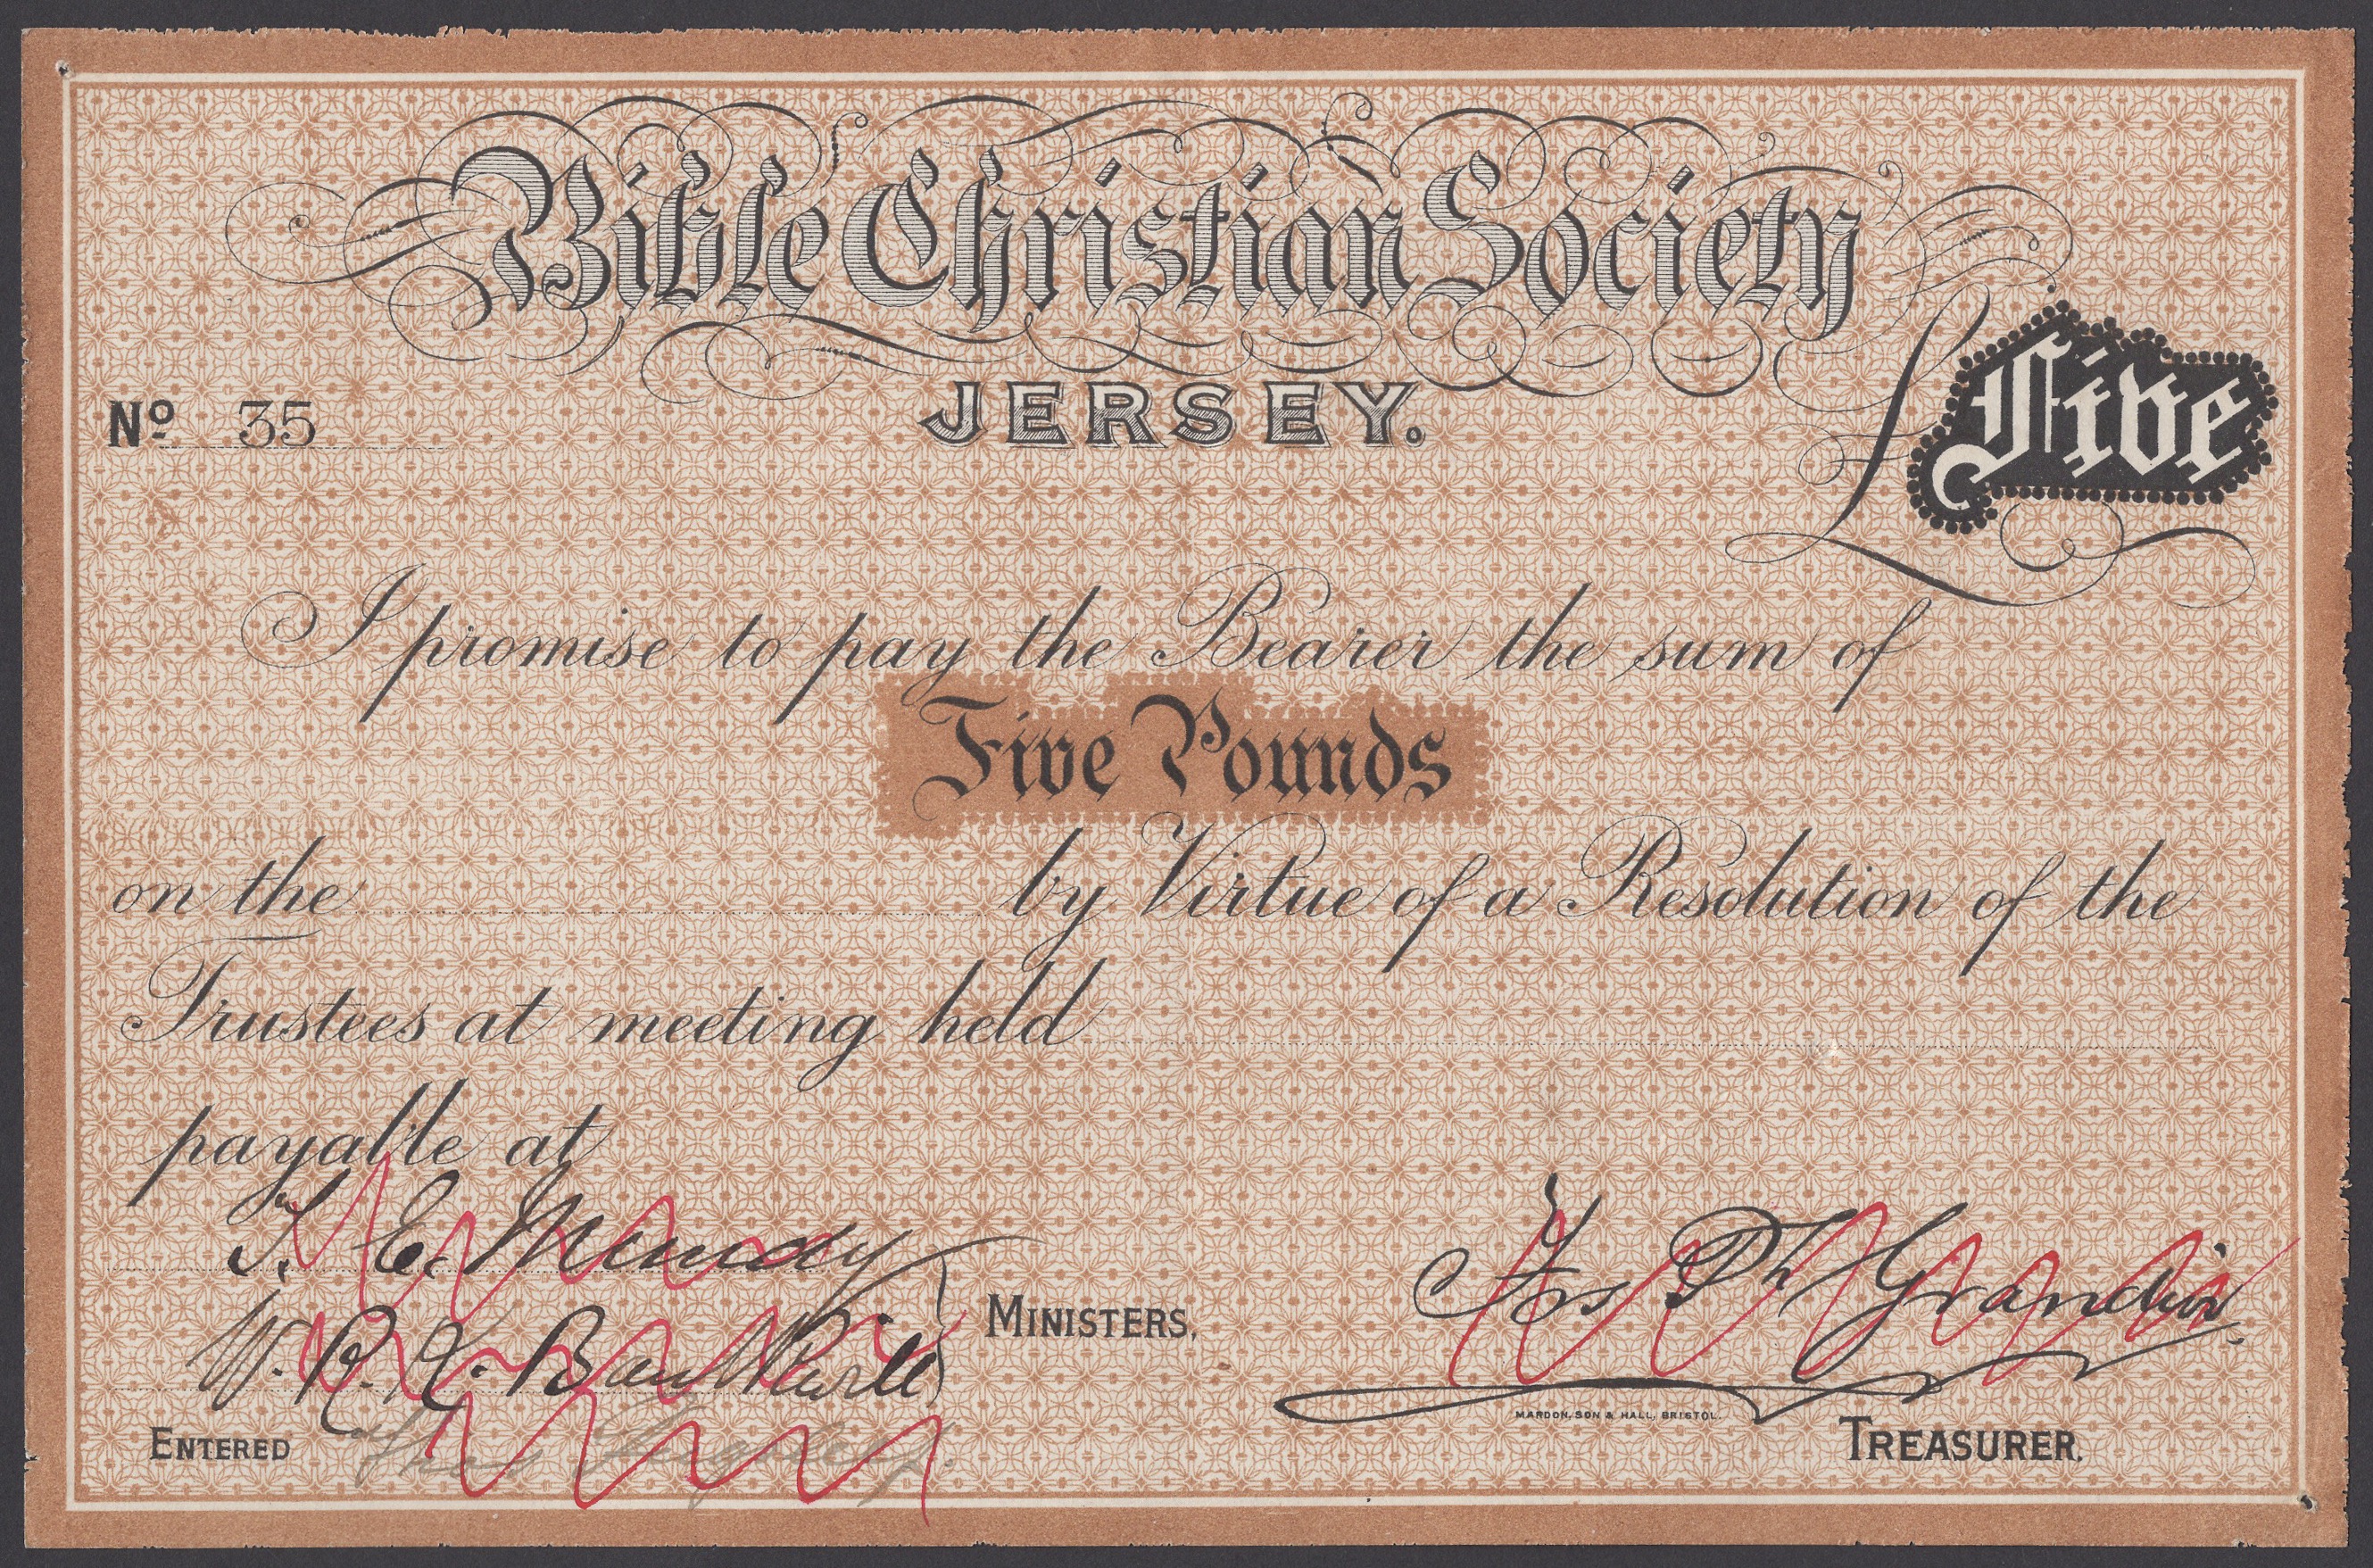 Bible Christian Society
JERSEY.
No 35
£ Five
I promise to pay the Bearer the sum of
Five Pounds
on the by Virtue of a Resolution of the
Trustees at meeting held
payable at
T. E. Mundy
W. R. K. Baulkwill
MINISTERS,
Grandin
MARDON, SON & HALL, BRISTOL.
ENTERED
TREASURER.